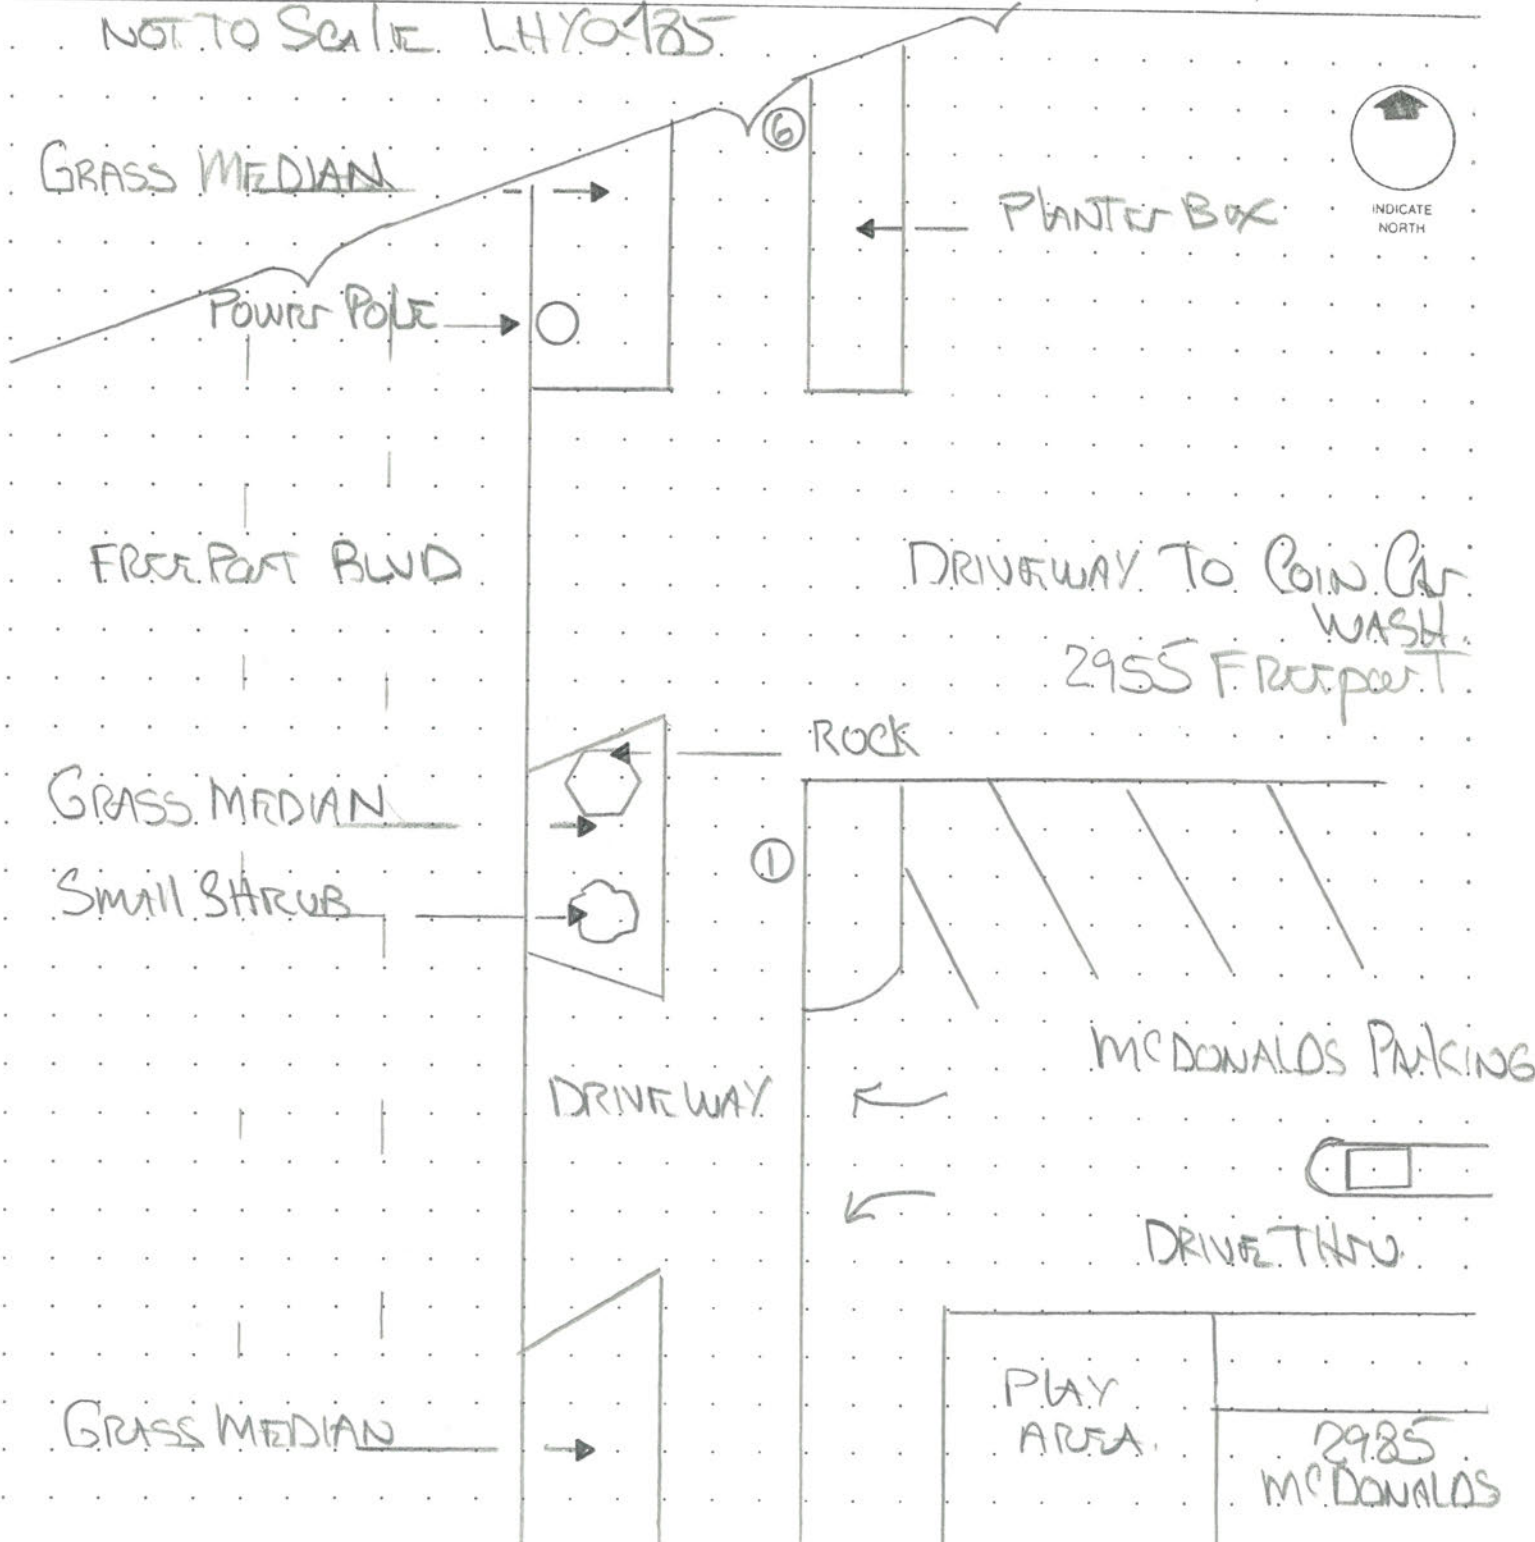 NOT TO SCALE LHY0185
6
GRASS MEDIAN
PLANTER BOX
INDICATE
NORTH
POWER POLE
FREEPORT BLVD
DRIVEWAY TO COIN CAR
WASH
2955 FREEPORT
ROCK
GRASS MEDIAN
1
SMALL SHRUB
MCDONALDS PARKING
DRIVEWAY
DRIVE THRU
PLAY
AREA
GRASS MEDIAN
2985
MCDONALDS